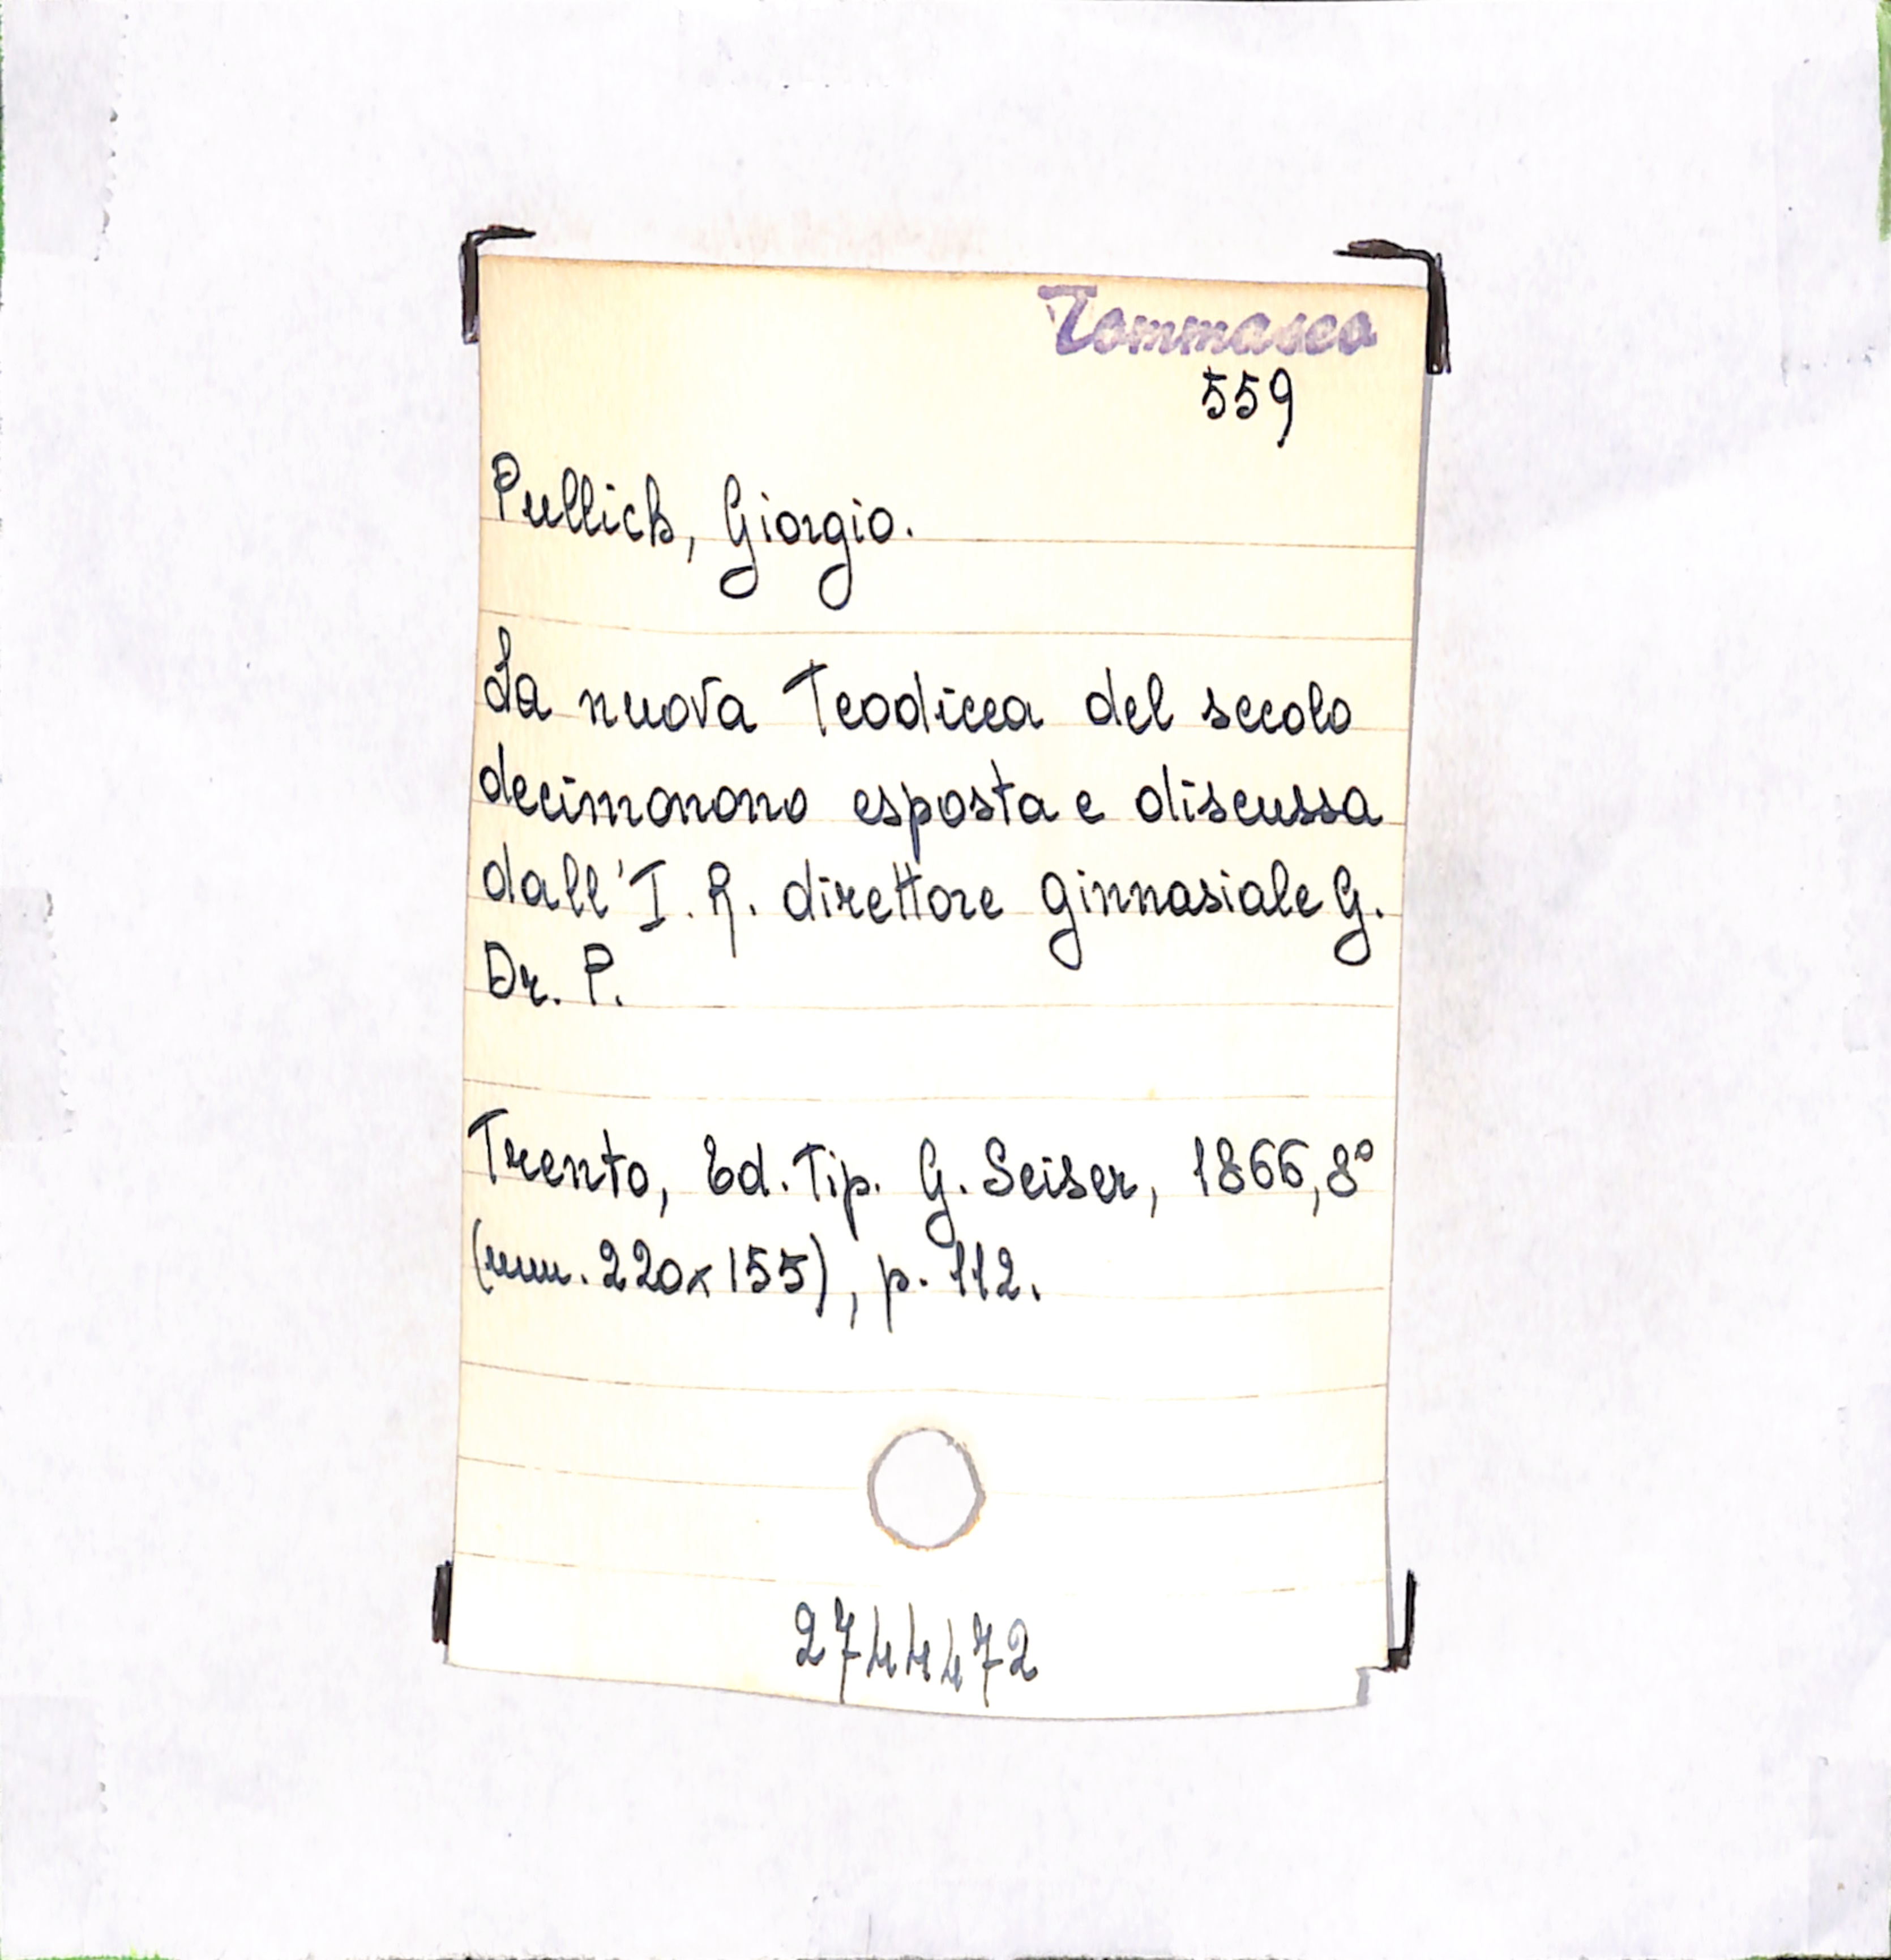 Tommaseo
559
Pullich, Giorgio.
La nuova Teodicea del secolo
decimonono esposta e discussa
dall'I. R. direttore ginnasiale G.
Dr. P.
Trento, Ed. Tip. G. Seiser, 1866, 8°
(mm. 220x155), p. 112.
2744472